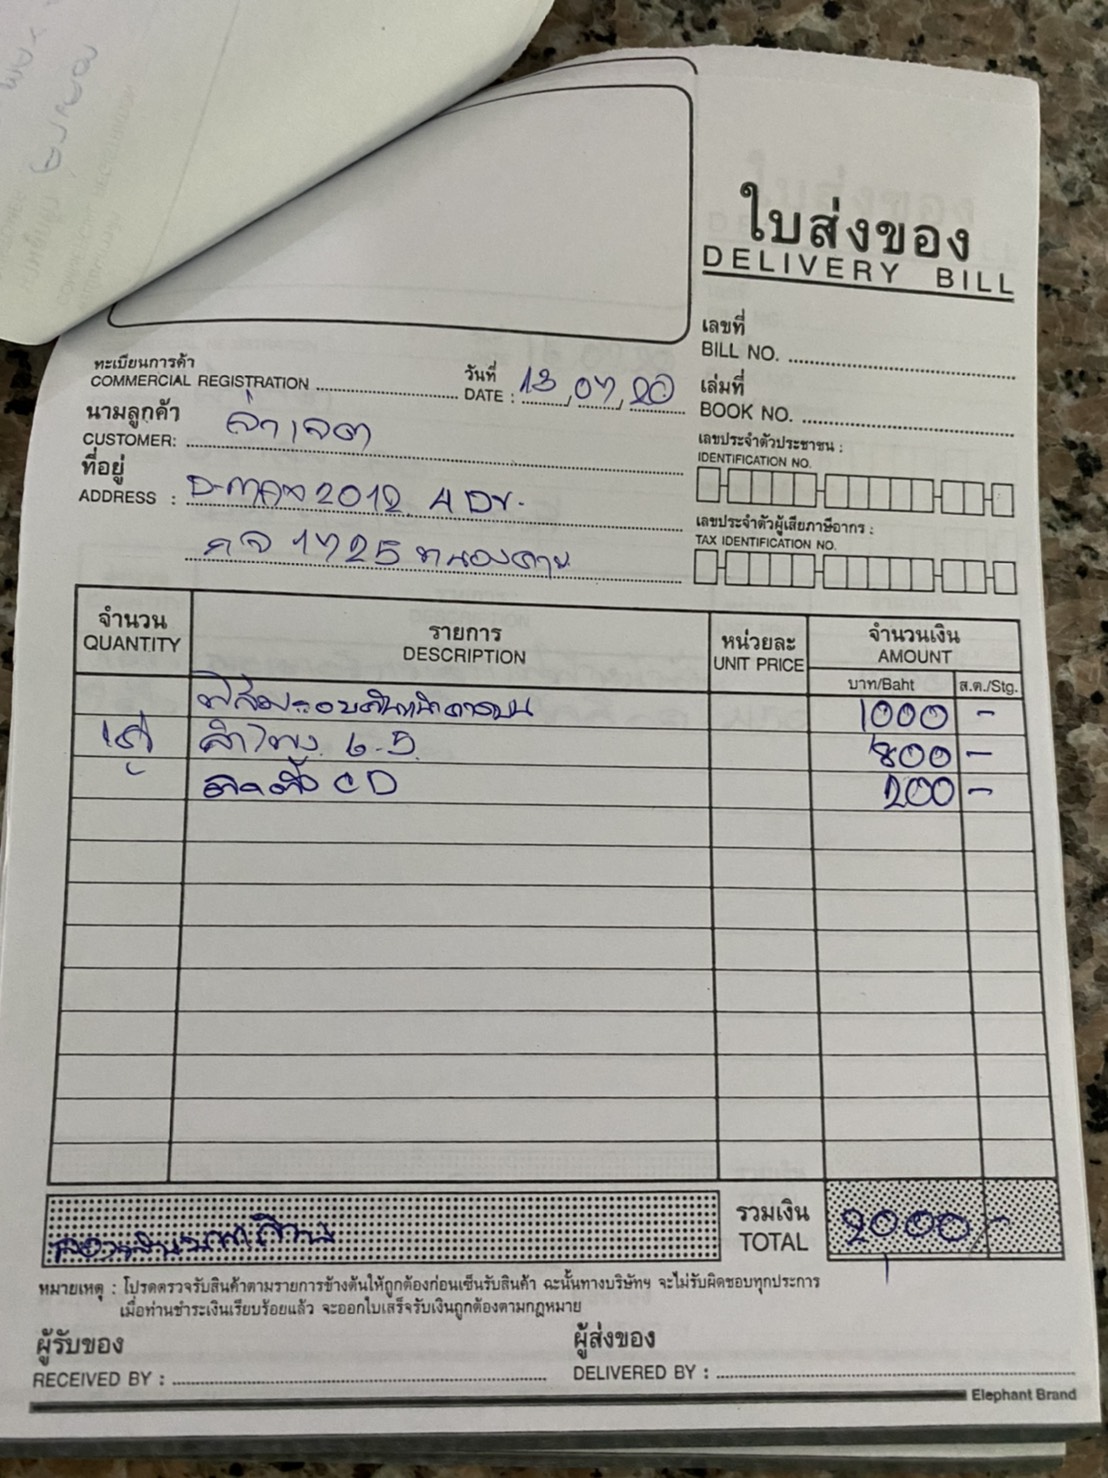 ใบส่งของ
DELIVERY BILL
เลขที่
BILL NO.
ทะเบียนการค้า
COMMERCIAL REGISTRATION
วันที่
DATE : 13, 07, 20
เล่มที่
BOOK NO.
นามลูกค้า
CUSTOMER:
เลขประจำตัวประชาชน :
IDENTIFICATION NO.
ที่อยู่
ADDRESS : D-max 2012 4 Dr.
1725 หนองคาย
เลขประจำตัวผู้เสียภาษีอากร :
TAX IDENTIFICATION NO.
จำนวน
QUANTITY
รายการ
DESCRIPTION
หน่วยละ
UNIT PRICE
จำนวนเงิน
AMOUNT
บาท/Baht
ส.ต./Stg.
1000 -
1คู่ ลำโพง 6.5 800 -
ติดตั้ง CD 200 -
สองพันบาทถ้วน
รวมเงิน
TOTAL
2000 -
หมายเหตุ : โปรดตรวจรับสินค้าตามรายการข้างต้นให้ถูกต้องก่อนเซ็นรับสินค้า ฉะนั้นทางบริษัทฯ จะไม่รับผิดชอบทุกประการ
เมื่อท่านชำระเงินเรียบร้อยแล้ว จะออกใบเสร็จรับเงินถูกต้องตามกฎหมาย
ผู้รับของ
RECEIVED BY :
ผู้ส่งของ
DELIVERED BY :
Elephant Brand